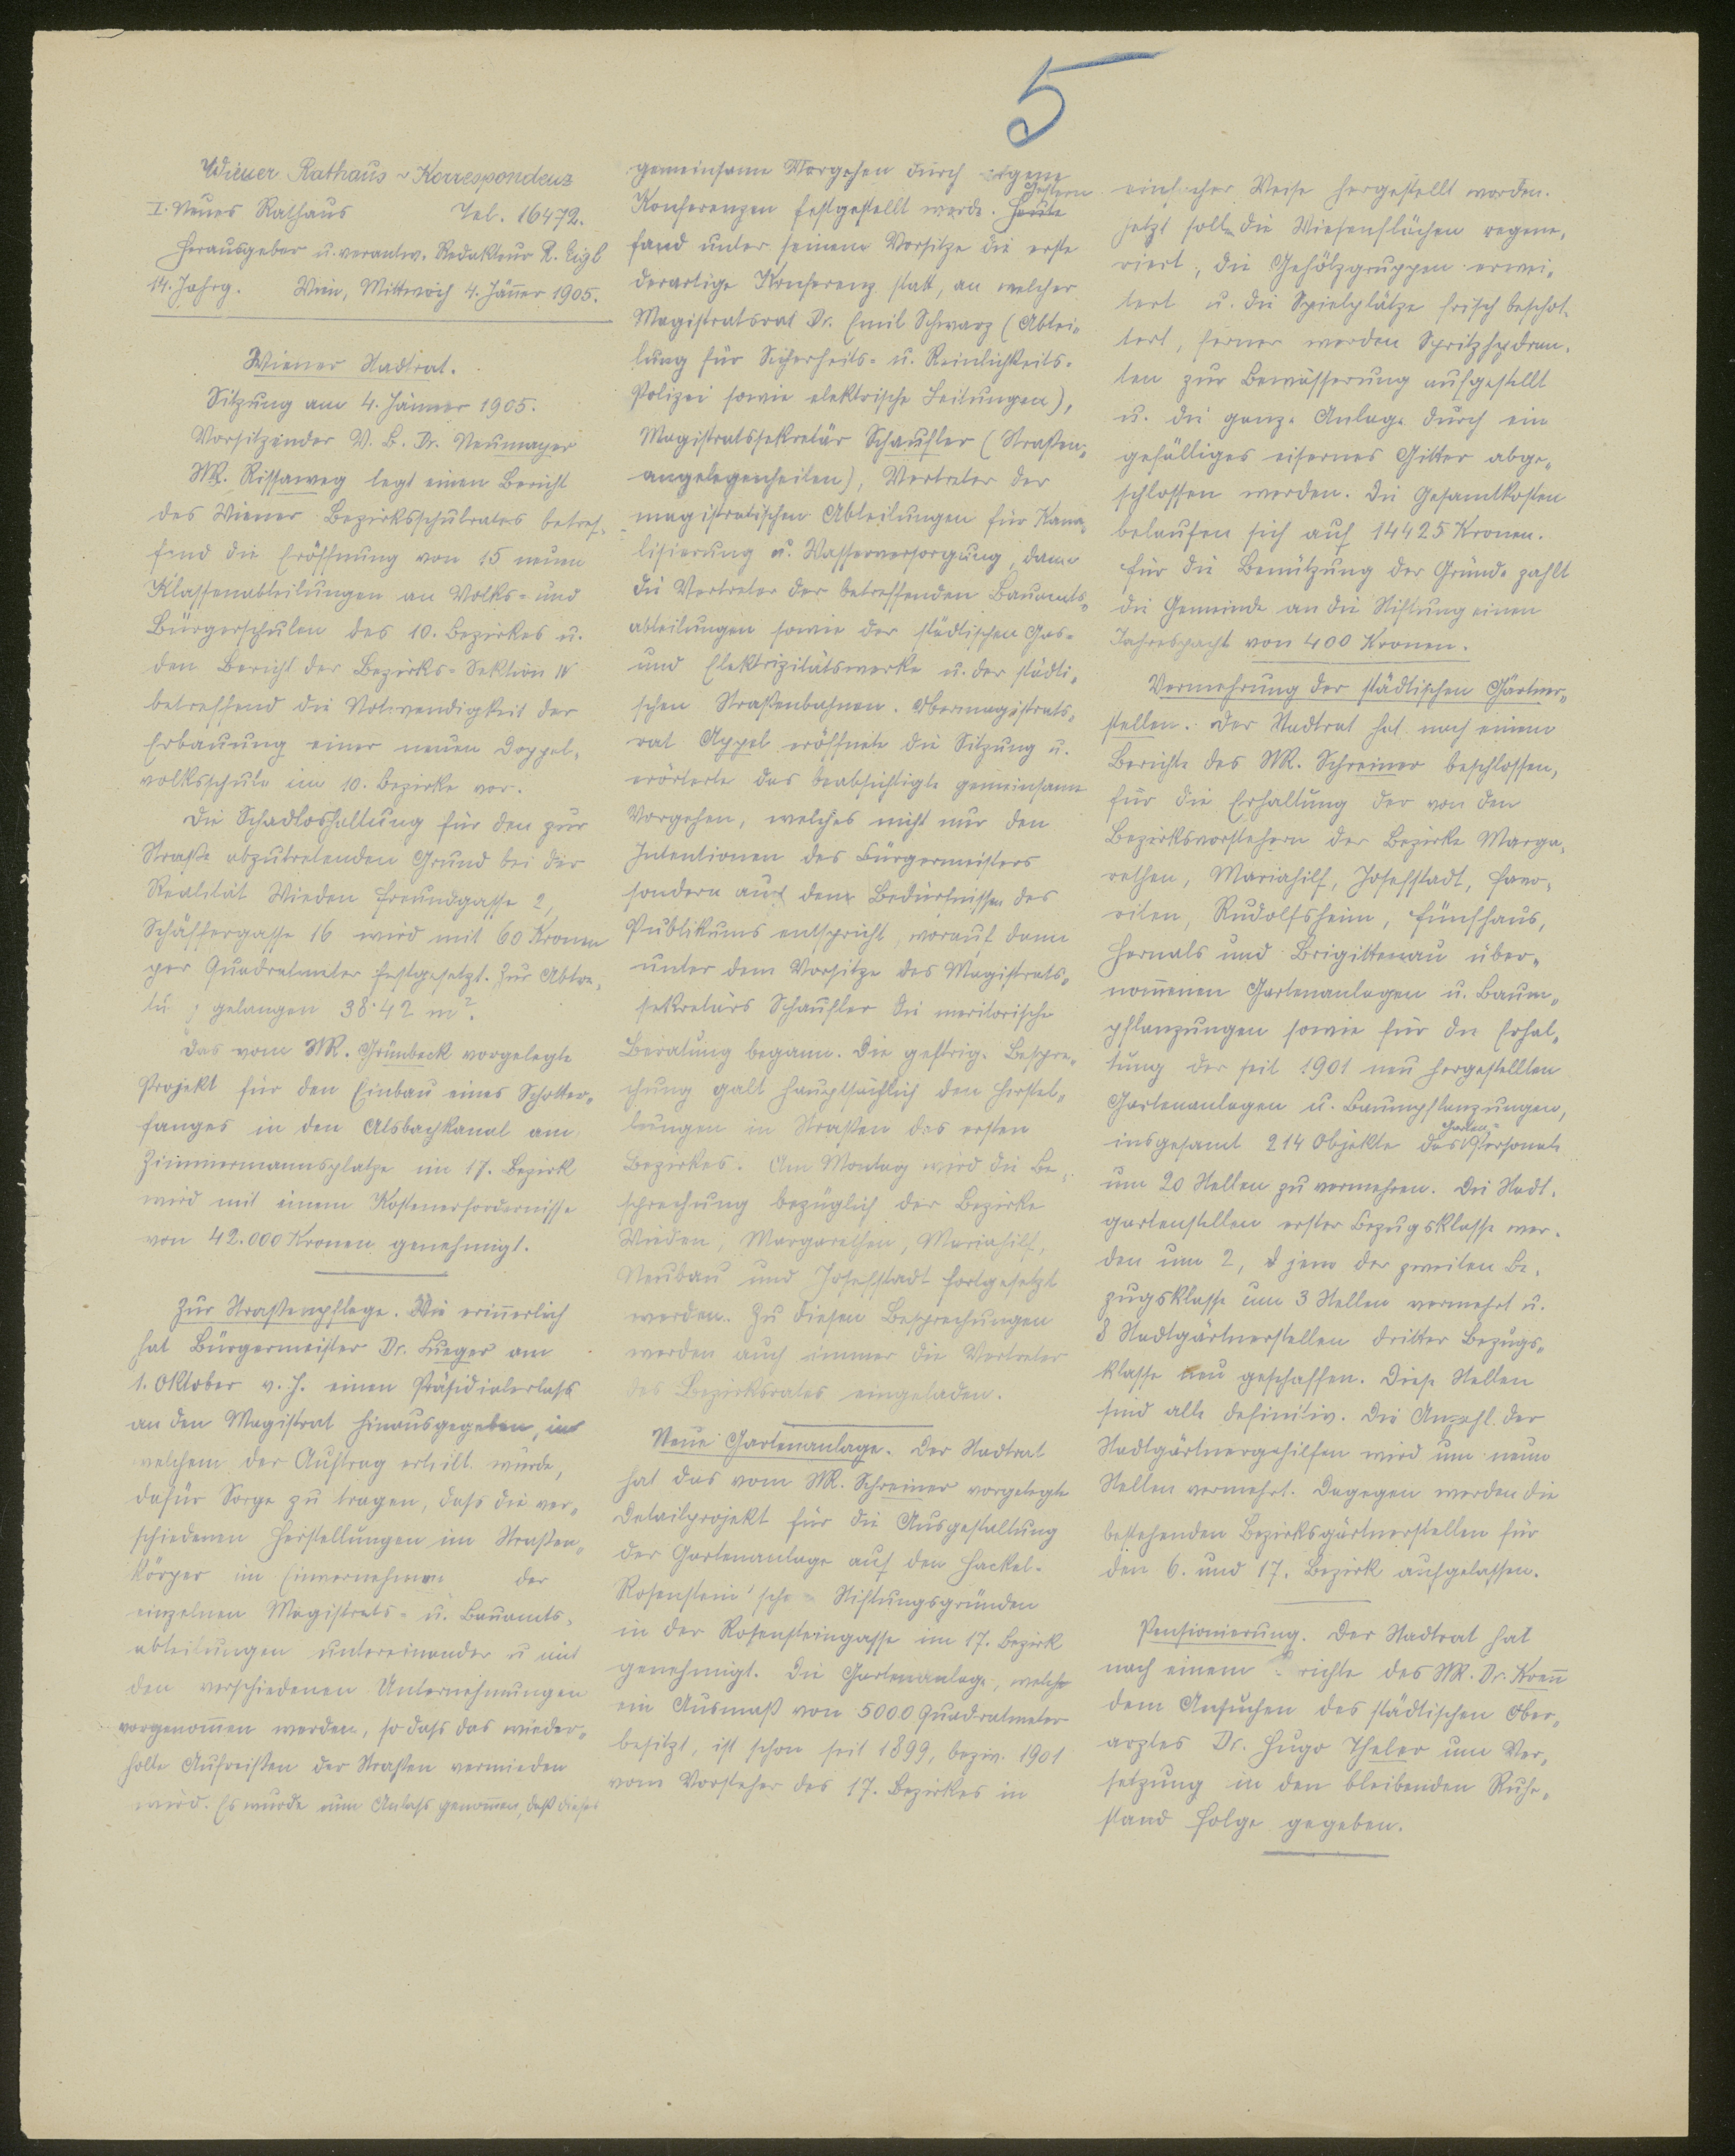 5
Wiener Rathaus-Korrespondenz
I. Neues Rathaus Tel. 16472.
Herausgeber u. verantw. Redakteur R. Eigl
14. Jahrg. Wien, Mittwoch 4. Jänner 1905.
Wiener Stadtrat.
Sitzung am 4. Jänner 1905.
Vorsitzender V. B. Dr. Neumayer
StR. Rissaweg legt einen Bericht
des Wiener Bezirksschulrates betref-
fend die Eröffnung von 15 neuen
Klassenabteilungen an Volks- und
Bürgerschulen des 10. Bezirkes u.
den Bericht der Bezirks-Sektion IV
betreffend die Notwendigkeit der
Erbauung einer neuen Doppel-
volksschule im 10. Bezirke vor.
Die Schadloshaltung für den zur
Straße abzutretenden Grund bei der
Realität Wieden Freundgasse 2,
Schäffergasse 16 wird mit 60 Kronen
per Quadratmeter festgesetzt. Zur Abtre-
tung gelangen 38·42 m².
Das vom StR. Grünbeck vorgelegte
Projekt für den Einbau eines Schotter-
fanges in den Alsbachkanal am
Zimmermannsplatze im 17. Bezirk
wird mit einem Kostenerfordernisse
von 42.000 Kronen genehmigt.
Zur Straßenpflege. Wie erinnerlich
hat Bürgermeister Dr. Lueger am
1. Oktober v. J. einen Präsidialerlass
an den Magistrat hinausgegeben, in
welchem der Auftrag erteilt wurde,
dafür Sorge zu tragen, dass die ver-
schiedenen Herstellungen im Straßen-
körper im Einvernehmen der
einzelnen Magistrats- u. Bauamts-
abteilungen untereinander u mit
den verschiedenen Unternehmungen
vorgenommen werden, so dass das wieder-
holte Aufreißen der Straßen vermieden
wird. Es wurde nun Anlass genommen, daß dieses
gemeinsame Vorgehen durch eigene
Konferenzen festgestellt werde. Heute Gestern
fand unter seinem Vorsitze die erste
derartige Konferenz statt, an welcher
Magistratsrat Dr. Emil Schwarz (Abtei-
lung für Sicherheits- u. Reinlichkeits-
Polizei sowie elektrische Leitungen),
Magistratssekretär Schaufler (Straßen-
angelegenheiten), Vertreter der
magistratischen Abteilungen für Kana-
lisierung u. Wasserversorgung, dann
die Vertreter der betreffenden Bauamts-
abteilungen sowie der städtischen Gas-
und Elektrizitätswerke u. der städti-
schen Straßenbahnen. Obermagistrats-
rat Appel eröffnete die Sitzung u.
erörterte das beabsichtigte gemeinsame
Vorgehen, welches nicht nur den
Intentionen des Bürgermeisters
sondern auch den Bedürfnissen des
Publikums entspricht, worauf dann
unter dem Vorsitze des Magistrats-
sekretärs Schaufler die meritorische
Beratung begann. Die gestrige Bespre-
chung galt hauptsächlich den Herstel-
lungen in Straßen des ersten
Bezirkes. Am Montag wird die Be-
sprechung bezüglich der Bezirke
Wieden, Margarethen, Mariahilf,
Neubau und Josefstadt fortgesetzt
werden. Zu diesen Besprechungen
werden auch immer die Vertreter
des Bezirksrates eingeladen.
Neue Gartenanlage. Der Stadtrat
hat das vom StR. Schreiner vorgelegte
Detailprojekt für die Ausgestaltung
der Gartenanlage auf den Hackel-
Rosenstein'sche Stiftungsgründen
in der Rosensteingasse im 17. Bezirk
genehmigt. Die Gartenanlage, welche
ein Ausmaß von 5000 Quadratmeter
besitzt, ist schon seit 1899, bezw. 1901
vom Vorsteher des 17. Bezirkes in
einfacher Weise hergestellt worden.
Jetzt soll die Wiesenflächen regene-
riert, die Gehölzgruppen erwei-
tert u. die Spielplätze frisch beschot-
tert, ferner werden Spritzhydran-
ten zur Bewässerung aufgestellt
u. die ganze Anlage durch ein
gefälliges eisernes Gitter abge-
schlossen werden. Die Gesamtkosten
belaufen sich auf 14425 Kronen.
Für die Benützung der Gründe zahlt
die Gemeinde an die Stiftung einen
Jahrespacht von 400 Kronen.
Vermehrung der städtischen Gärtner-
stellen. Der Stadtrat hat nach einem
Berichte des StR. Schreiner beschlossen,
für die Erhaltung der von den
Bezirksvorstehern der Bezirke Marga-
rethen, Mariahilf, Josefstadt, Favo-
riten, Rudolfsheim, Fünfhaus,
Hernals und Brigittenau über-
nommenen Gartenanlagen u. Baum-
pflanzungen sowie für die Erhal-
tung der seit 1901 neu hergestellten
Gartenanlagen u. Baumpflanzungen,
insgesamt 214 Objekte das Garten-Personale
um 20 Stellen zu vermehren. Die Stadt-
gartenstellen erster Bezugsklasse wer-
den um 2, jene der zweiten Be-
zugsklasse um 3 Stellen vermehrt u.
8 Stadtgärtnerstellen dritter Bezugs-
klasse neu geschaffen. Diese Stellen
sind alle definitiv. Die Anzahl der
Stadtgärtnergehilfen wird um neun
Stellen vermehrt. Dagegen werden die
bestehenden Bezirksgärtnerstellen für
den 6. und 17. Bezirk aufgelassen.
Pensionierung. Der Stadtrat hat
nach einem Berichte des StR. Dr. Krenn
dem Ansuchen des städtischen Ober-
arztes Dr. Hugo Theler um Ver-
setzung in den bleibenden Ruhe-
stand Folge gegeben.